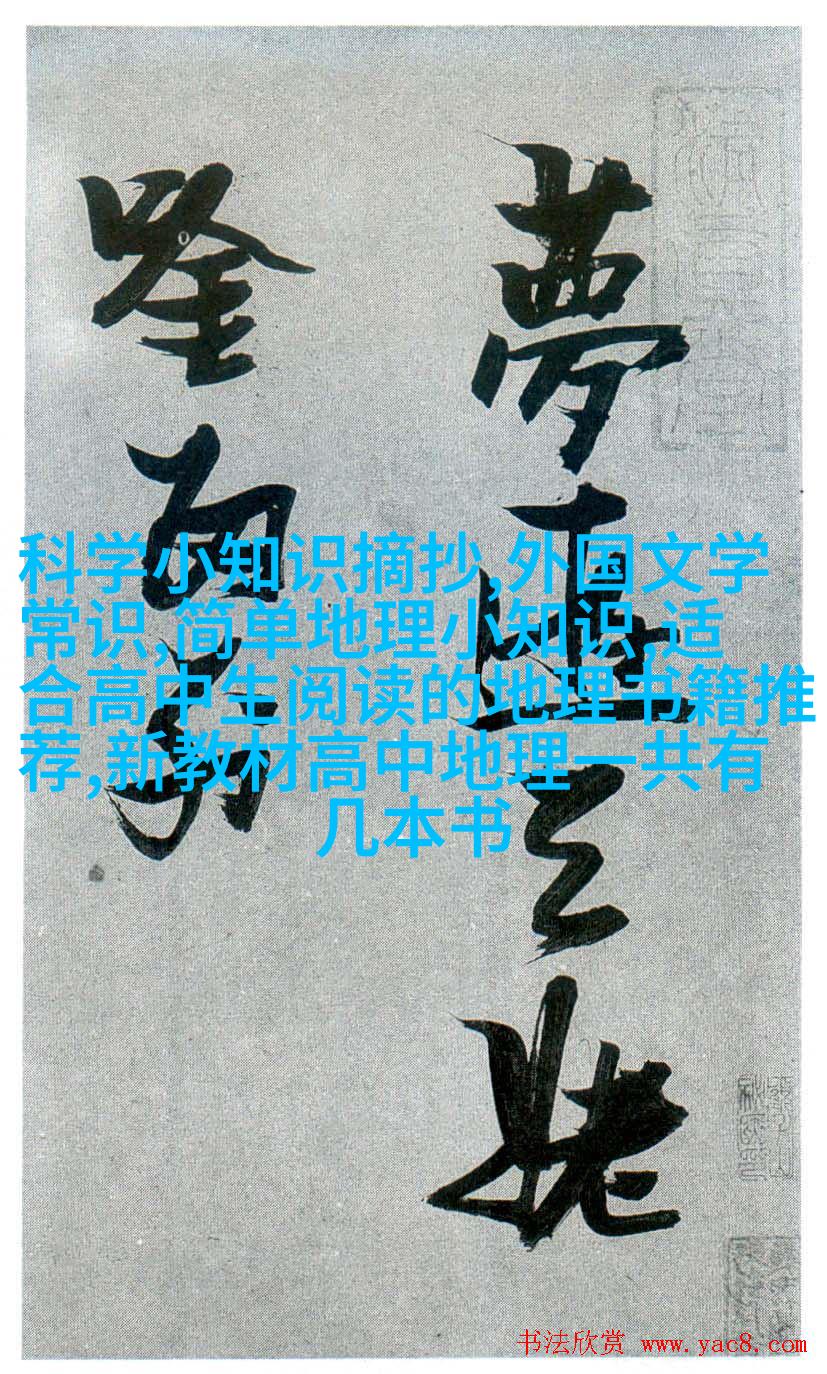 夢
姥
唫
科学小知识摘抄,外国文学
常识,简单地理小知识,适
合高中生阅读的地理书籍推
荐,新教材高中地理一共有
几本书
书法欣赏 www.yac8.com